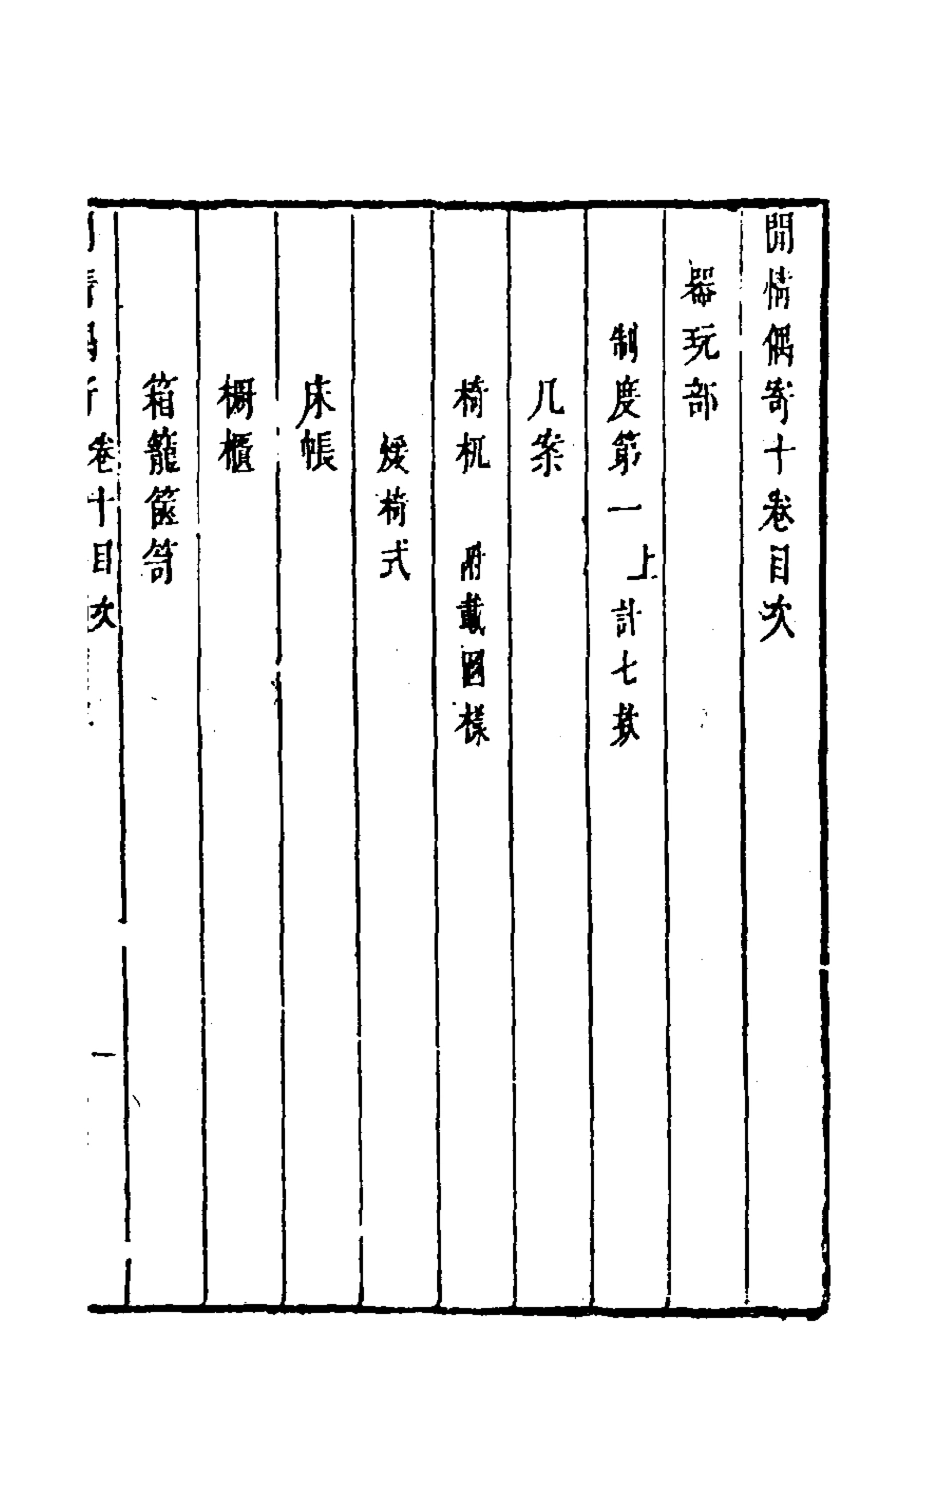 閒情偶寄十卷目次
器玩部
制度第一 上計七款
几案
椅杌 附載圖樣
煖椅式
床帳
櫥櫃
箱籠篋笥
卷十目次
一